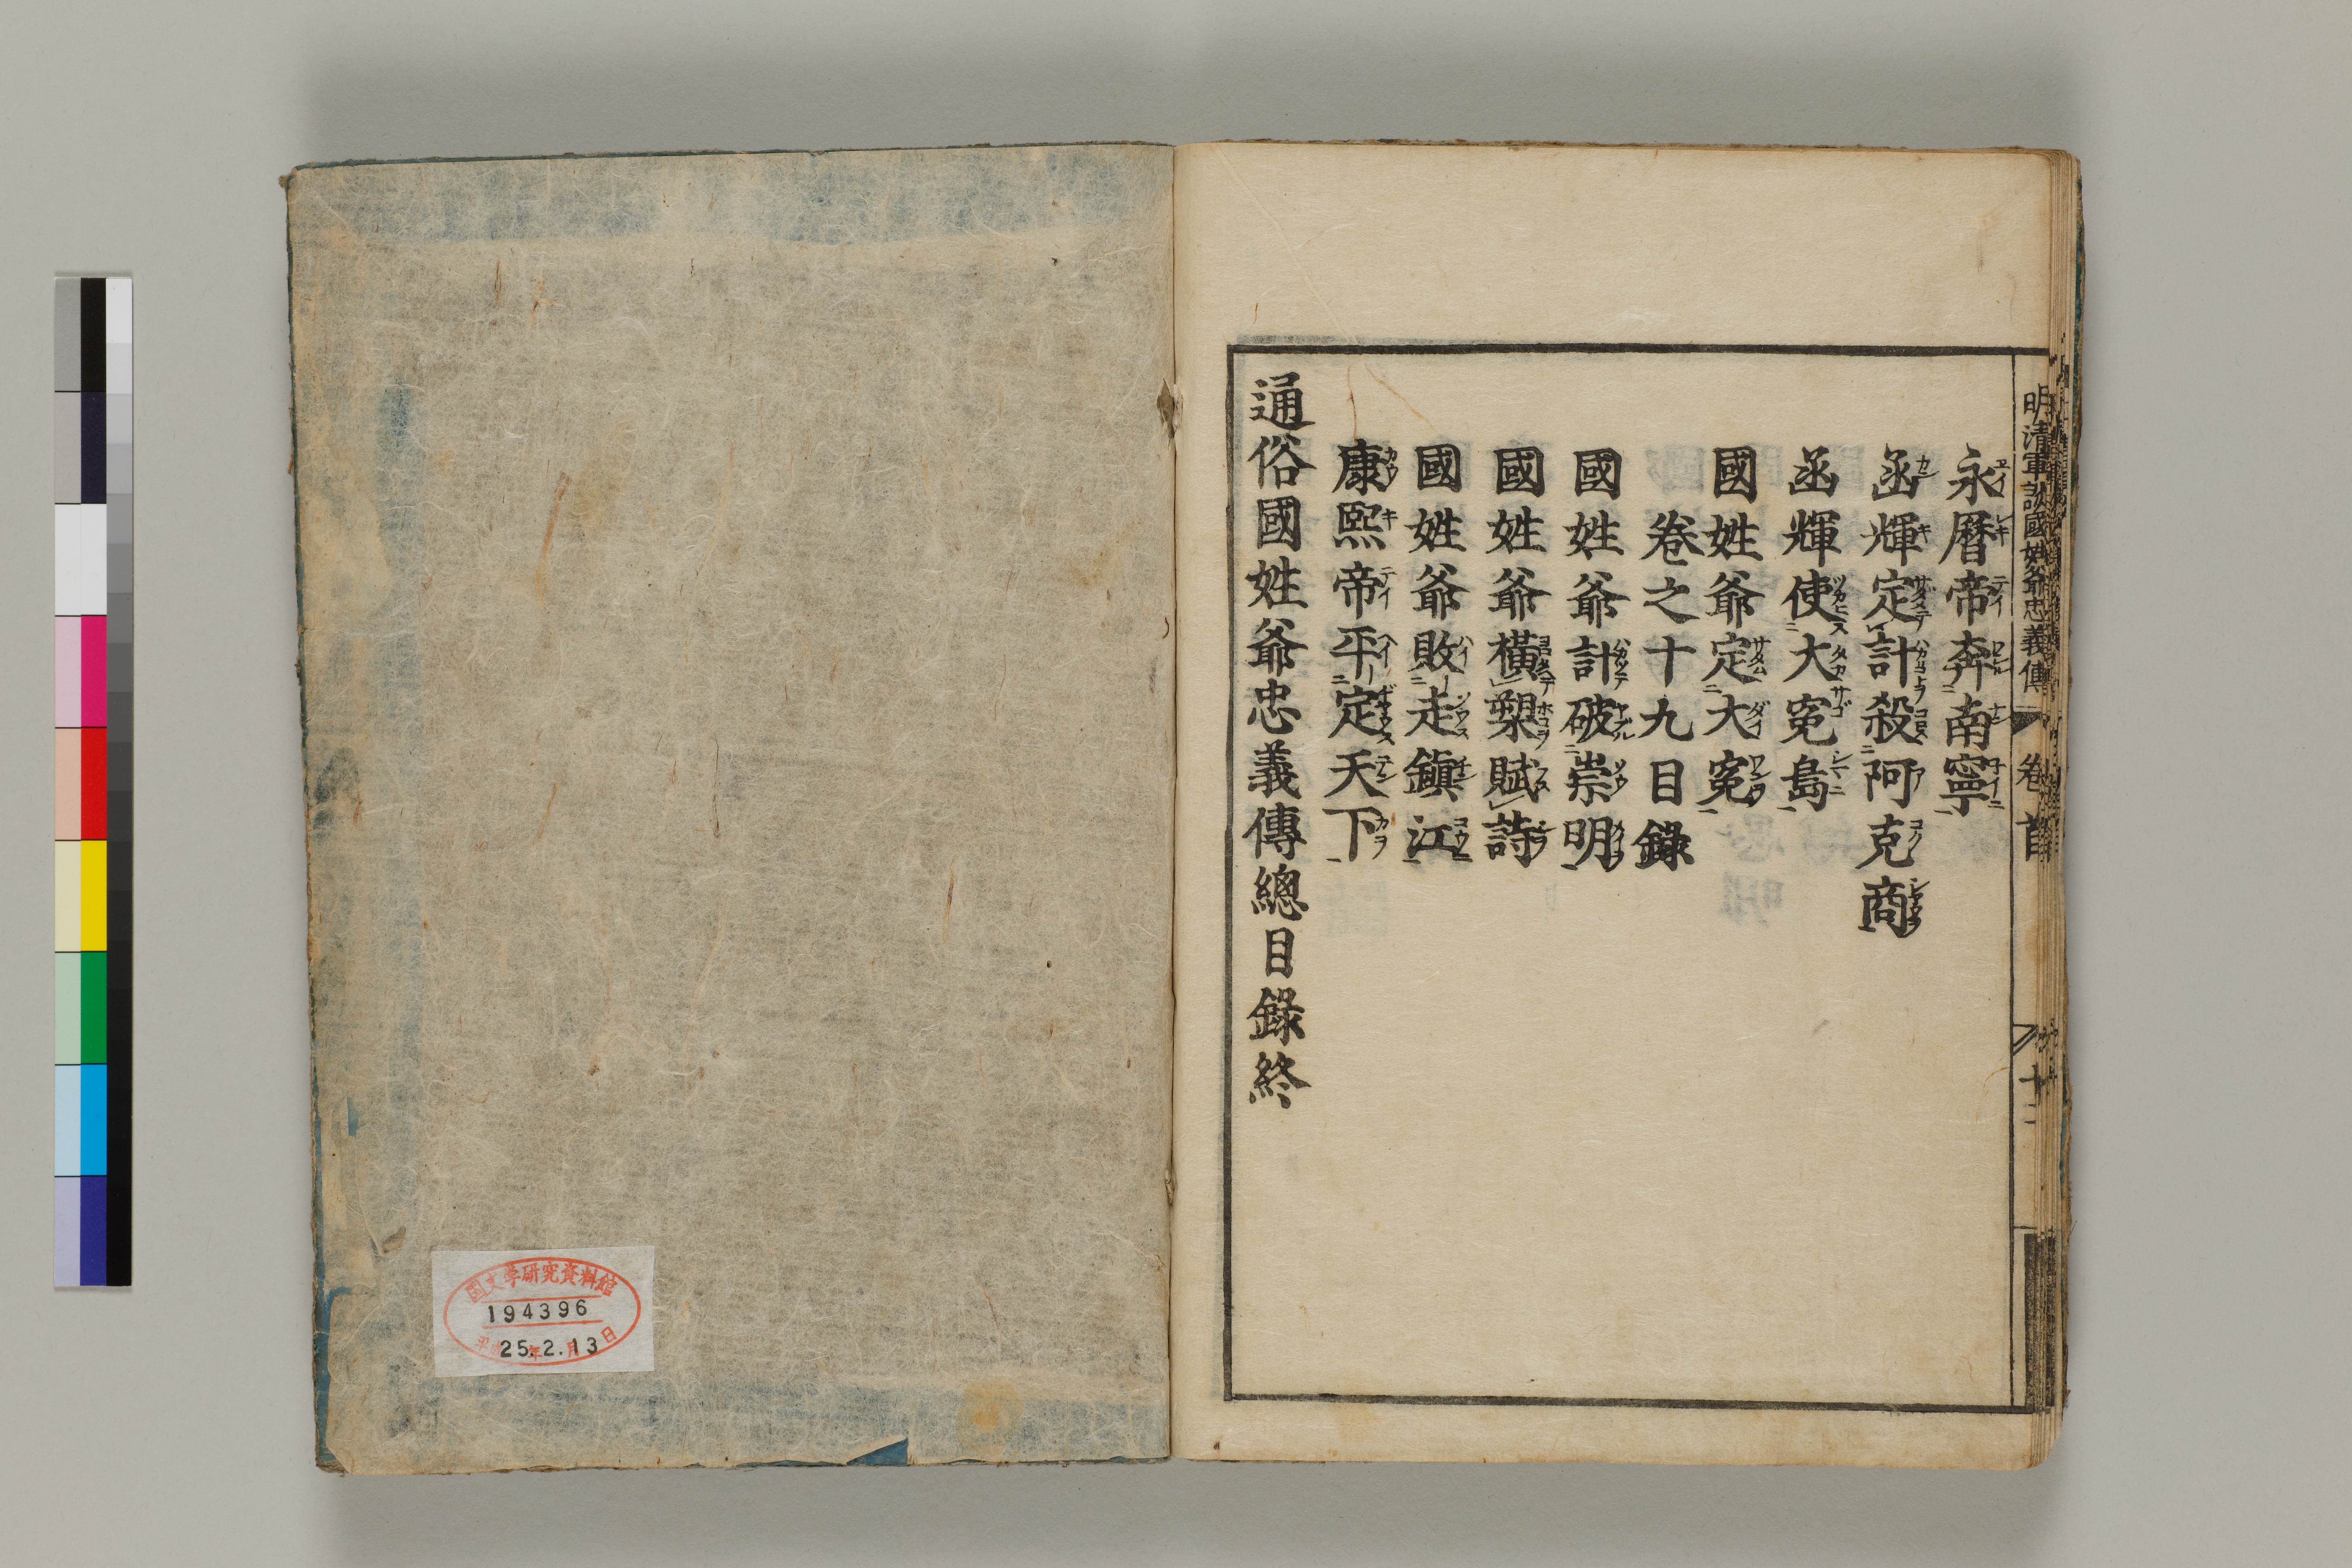 明清軍談國姓爺忠義傳 卷首 十二
永曆帝奔南寧
函輝定計殺阿克商
函輝使大冤島
國姓爺定大冤
卷之十九目錄
國姓爺計破崇明
國姓爺橫槊賦詩
國姓爺敗走鎮江
康熙帝平定天下
通俗國姓爺忠義傳總目錄終
国文学研究資料館
194396
25.2.13
年 月 日